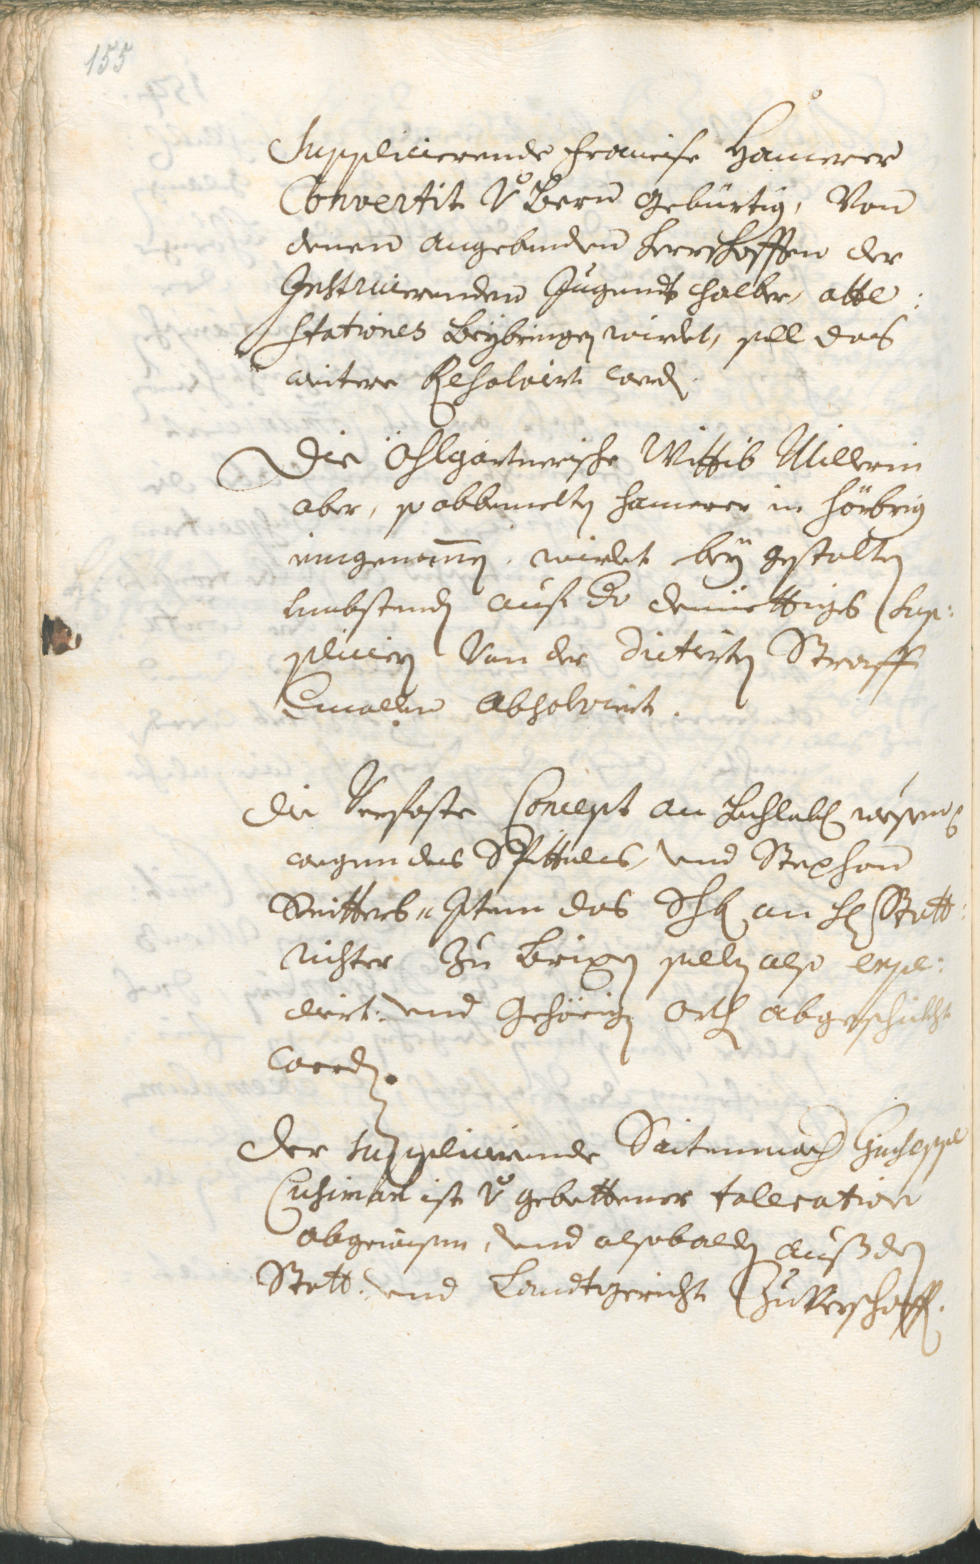 155
Supplicierende Francisc Hamerer
Convertit v̊ Bern gebürtig, Von
denen angebenden herrschafften der
Instruierenden Jugendt halber, atte:
stationes beybringen wirdet, soll das
weitere Resolvirt werdn.
Die Öhlgartnerische Wittib Millerin
aber, so obbemelten Hamerer in hörbrig
eingenommen, wirdet bey gestalten
umbstenden auf Ir demüettiges Sup:
plicien Von der dictirten Straff
Emallen Absolviert.
Die Verfaste Concept an
wegen des Spittales, und Stephan
Item das Schr. an H. Statt:
richter Zu Brixen sollen also expe:
dirt: und gehörigen orth abgeschickht
werdn.
Der supplicierende Saitenmacher Guiseppe
ist v̊ gebettener toleration
abgewisen, und alsobalden auß dem
Statt: und Landtgericht Zuverschaffn.